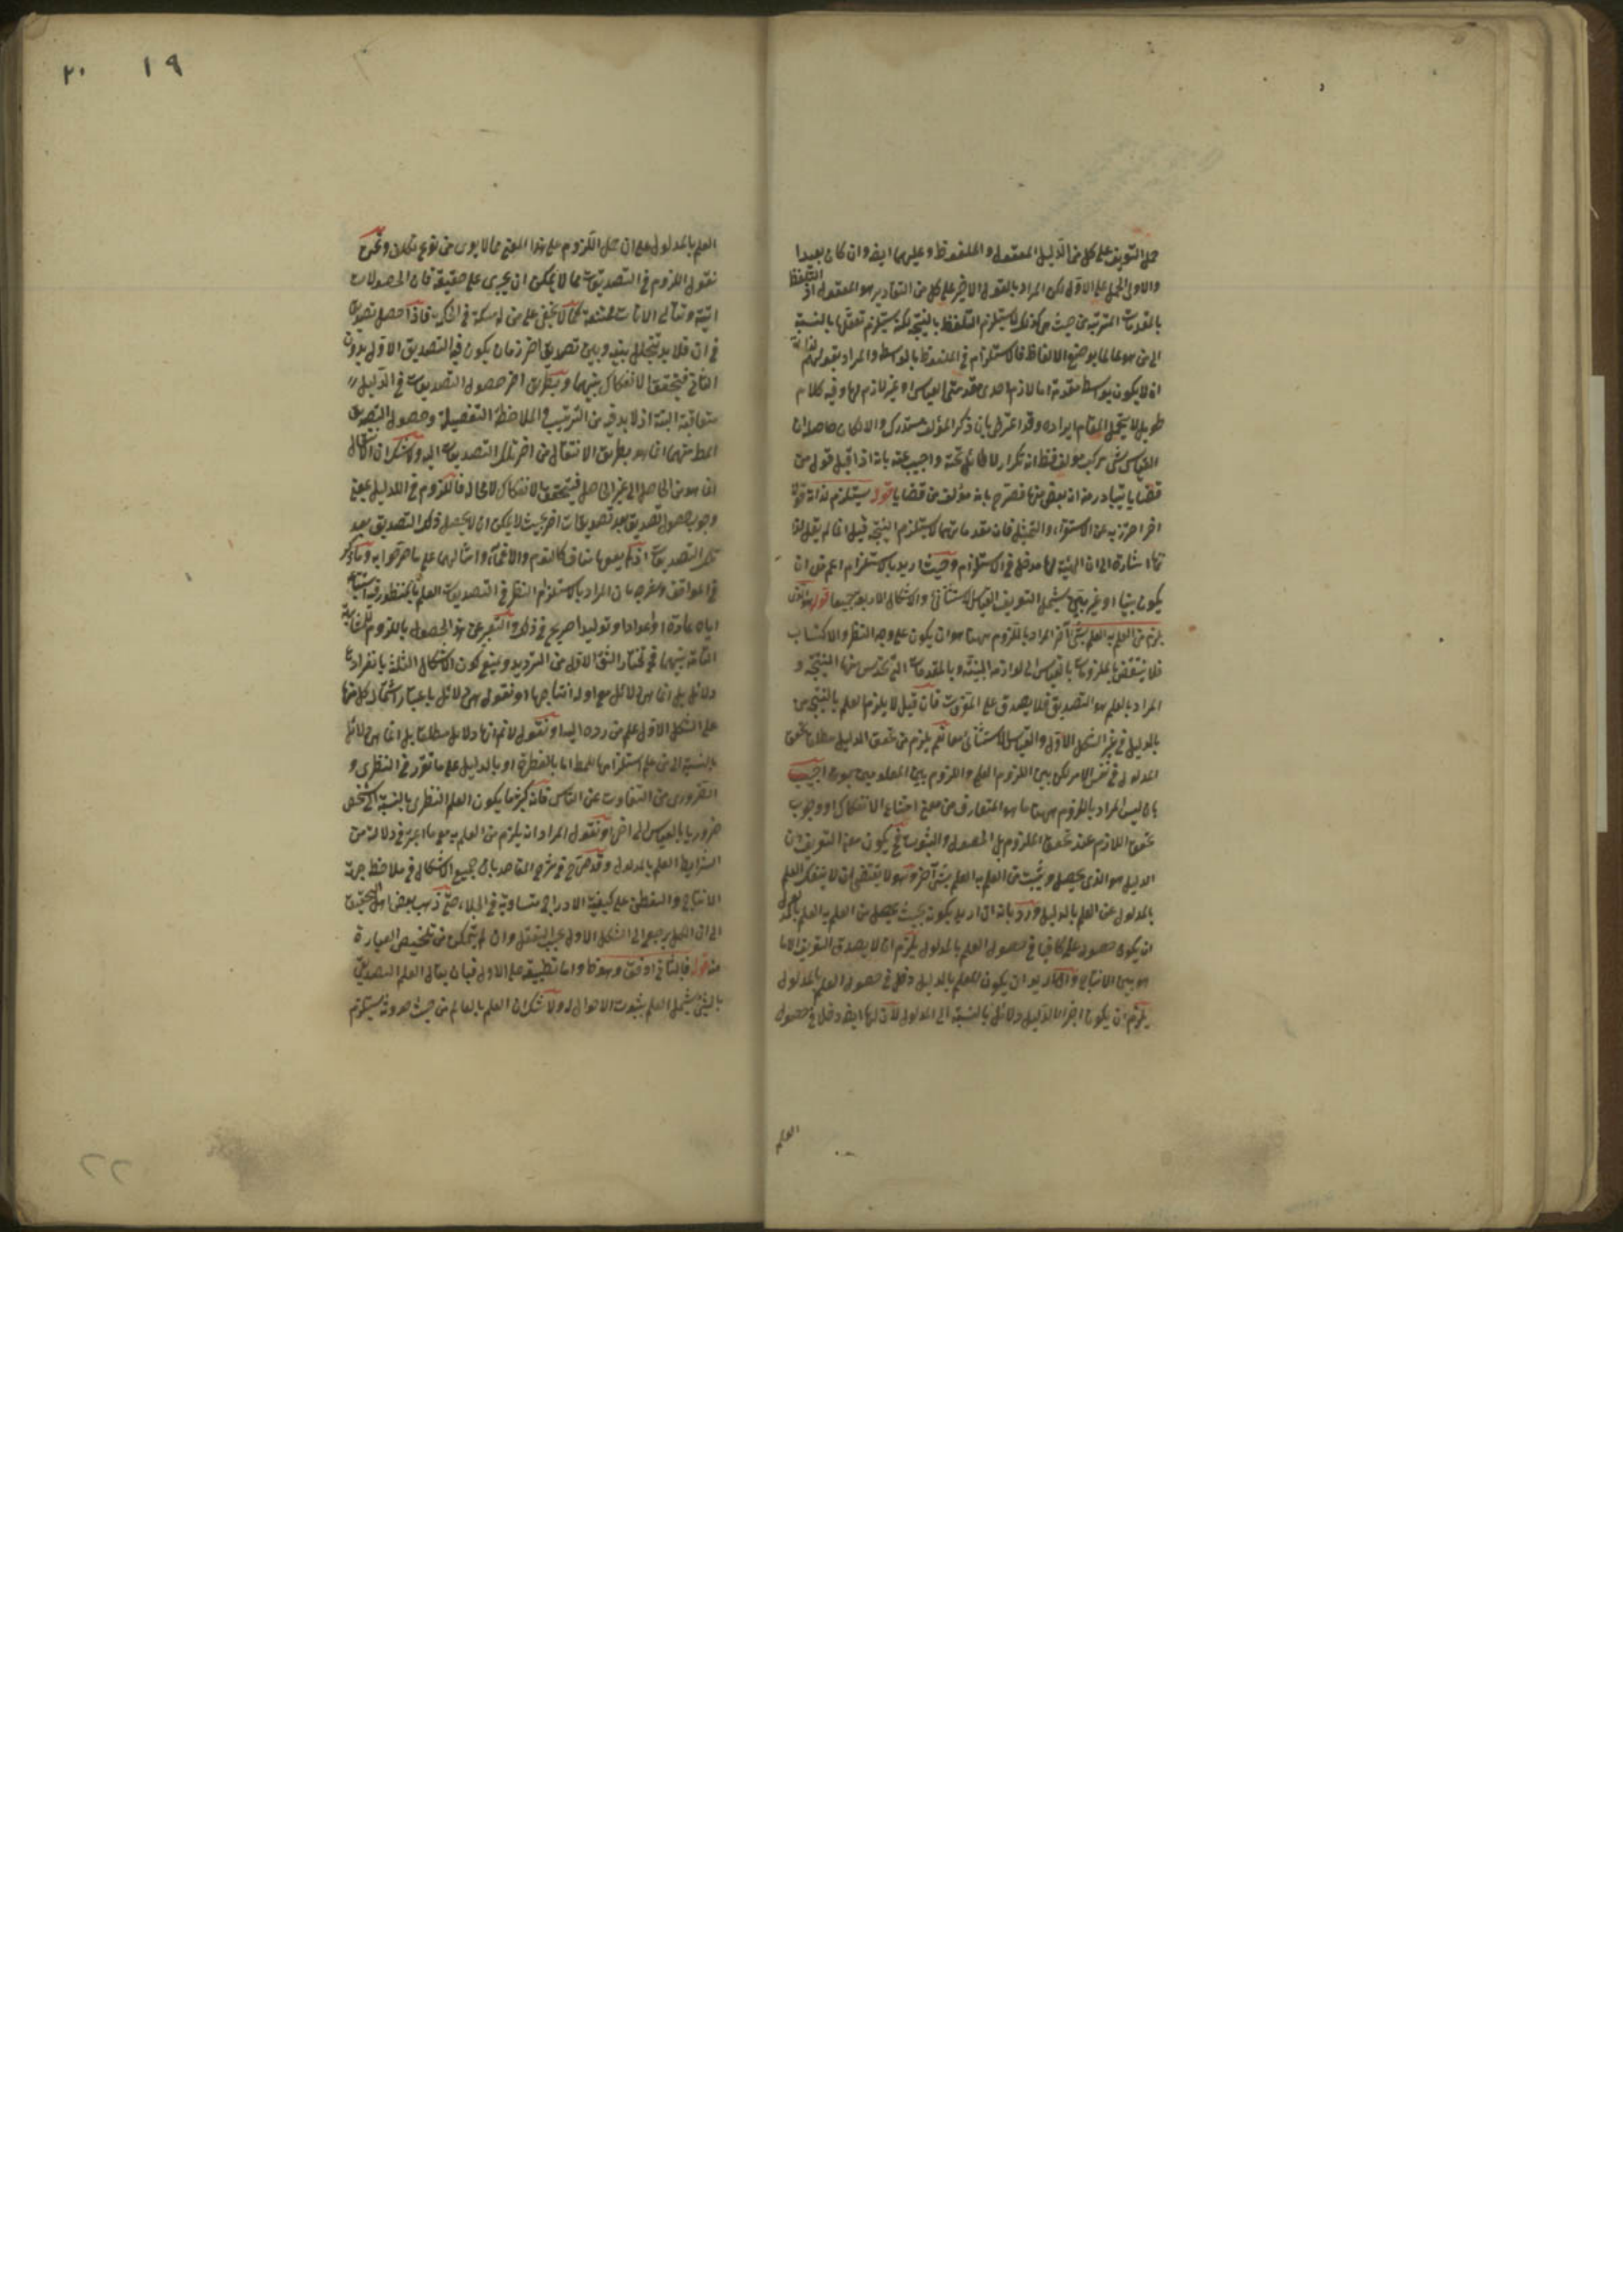 حمل التعريف على كل من الدليل المعقول والملفوظ وعليهما ايضا وان كان بعيدا
والاولى الحمل على الاول لكن المراد بالقول الاخير على كل من التقادير هو المعقول اذ التلفظ
بالمقدمات المترتبة من حيث هي كذلك لا يستلزم التلفظ بالنتيجة لكنه يستلزم تعقلها بالنسبة
الى من هو عالم بوضع الالفاظ فالاستلزام في الملفوظ بالواسطة والمراد بقولهم لذاته
ان لا يكون بواسطة مقدمة اما لازم احدى مقدمتي القياس او غير لازم لها وفيه كلام
طويل لا يحتمل المقام ايراده وقد اعترض بان ذكر المؤلف مستدرك والا لكان حاصله ان
القياس شيء مركب مؤلف فقط انه تكرار لا طائل تحته واجيب عنه بانه اذا قيل قول من
قضايا يتبادر منه انه بعض منها فصرح بانه مؤلف من قضايا قوله يستلزم لذاته قولا
اخر احترز به عن الاستقراء والتمثيل فان مقدماتهما لا يستلزم النتيجة قيل انما لم يقل لذا
تها اشارة الى ان الهيئة لها مدخل في الاستلزام وحيث اريد بالاستلزام اعم من ان
يكون بينا او غير بين يشمل التعريف القياس الاستثنائي والاشكال الاربعة جميعا قوله هو الذي
يلزم من العلم به العلم بشيء آخر المراد باللزوم ههنا هو ان يكون على وجه النظر والاكتساب
فلا ينتقض بالملزومات بالقياس الى لوازمها البينة وبالمقدمات التي تحدس منها النتيجة و
المراد بالعلم هو التصديق فلا يصدق على المعرفات فان قيل لا يلزم العلم بالنتيجة من
بالدليل في غير الشكل الاول والقياس الاستثنائي معا نعم يلزم من تحقق الدليل مطلقا تحقق
المدلول في نفس الامر لكن بين اللزوم العلمي واللزوم بين المعلومين بون اجيب
بان ليس المراد باللزوم ههنا ما هو المتعارف من معنى امتناع الانفكاك او وجوب
تحقق اللازم عند تحقق الملزوم بل الحصول والثبوت فح يكون معنى التعريف ان
الدليل هو الذي يحصل ويثبت من العلم به العلم بشيء آخر وهو لا يقتضي ان لا ينفك العلم
بالمدلول عن العلم بالدليل ورد بانه ان اريد يكون بحيث يحصل من العلم به العلم بالمدلول
ان يكون حصول علمه كافيا في حصول العلم بالمدلول يلزم ان لا يصدق التعريف الا ما
هو بين الانتاج وان اريد ان يكون للعلم بالدليل دخل في حصول العلم بالمدلول
يلزم ان يكون اجزاء الدليل دلائل بالنسبة الى المدلول لان لها ايضا دخلا في حصول
العلم
١٩
٢٠
العلم بالمدلول على ان حمل اللزوم على هذا المعنى مما لا يعرى من نوع تكلف ونحن
نقول اللزوم في التصديقات مما لا يمكن ان يجري على حقيقته فان الحصولات
آنية وتتالي الآنات ممتنعة كما لا يخفى على من له مسكة في الحكمة فاذا حصل تصديق
في آن فلا بد يتخلل بينه وبين تصديق اخر زمان يكون فيه التصديق الاول بدون
الثاني فيتحقق الانفكاك بينهما وبطريق اخر حصول التصديقات في الدليل
متعاقبة البتة اذ لا بد فيه من الترتيب والملاحظة التفصيلية وحصول التصديق
المط منهما انما هو بطريق الانتقال من اخر تلك التصديقات اليه ولا شك ان الانتقال
انما هو من الحاصل الى غير الحاصل فيتحقق الانفكاك لا محالة فاللزوم في الدليل بمعنى
وجوب حصول تصديق بعد تصديقات اخر بحيث لا يمكن ان لا يحصل ذلك التصديق بعد
تلك التصديقات اذ لم يعقبها مناف كالنوم والاغماء وامثالهما على ما صرحوا به وما ذكر
في المواقف وغيره ان المراد بالاستلزام النظر في التصديقات العلم بالمنظور فيه استعقابه
اياه عادة او اعدادا وتوليدا صريح في ذلك والتعبير عن هذا الحصول باللزوم للمشابهة
التامة بينهما فح نختار الشق الاول من الترديد ونمنع كون الاشكال الثلثة بانفرادها
دلائل بل انما هي دلائل مع ادلة انتاجها او نقول هي دلائل باعتبار اشتمال كل منها
على الشكل الاول علم من رده اليه او نقول لا نم انها دلائل مطلقا بل انما هي دلائل
بالنسبة الى من علم استلزامها للمط اما بالفطرة او بالدليل على ما تقرر في النظري و
الضروري من التفاوت عن الناس فانه كثيرا ما يكون العلم النظري بالنسبة الى شخص
ضروريا بالقياس الى اخر او نقول المراد انه يلزم من العلم به مع ما اعتبر في دلالته من
الشرايط العلم بالمدلول وقد صرح في شرح المقاصد بان جميع الاشكال في ملاحظة جهة
الانتاج والتفطن على كيفية الاندراج متساوية في الجلاء حتى ذهب بعض اهل التحقيق
الى ان الكل يرجع الى الشكل الاول بحسب التعقل وان لم يتمكن من تلخيص العبارة
منه قوله فبالثاني اوفق وهو ظ واما تطبيقه على الاول فبان يقال العلم التصديقي
بالشيء يشمل العلم بثبوت الاحوال له ولا شك ان العلم بالعالم من حيث حدوثه يستلزم
٢٢